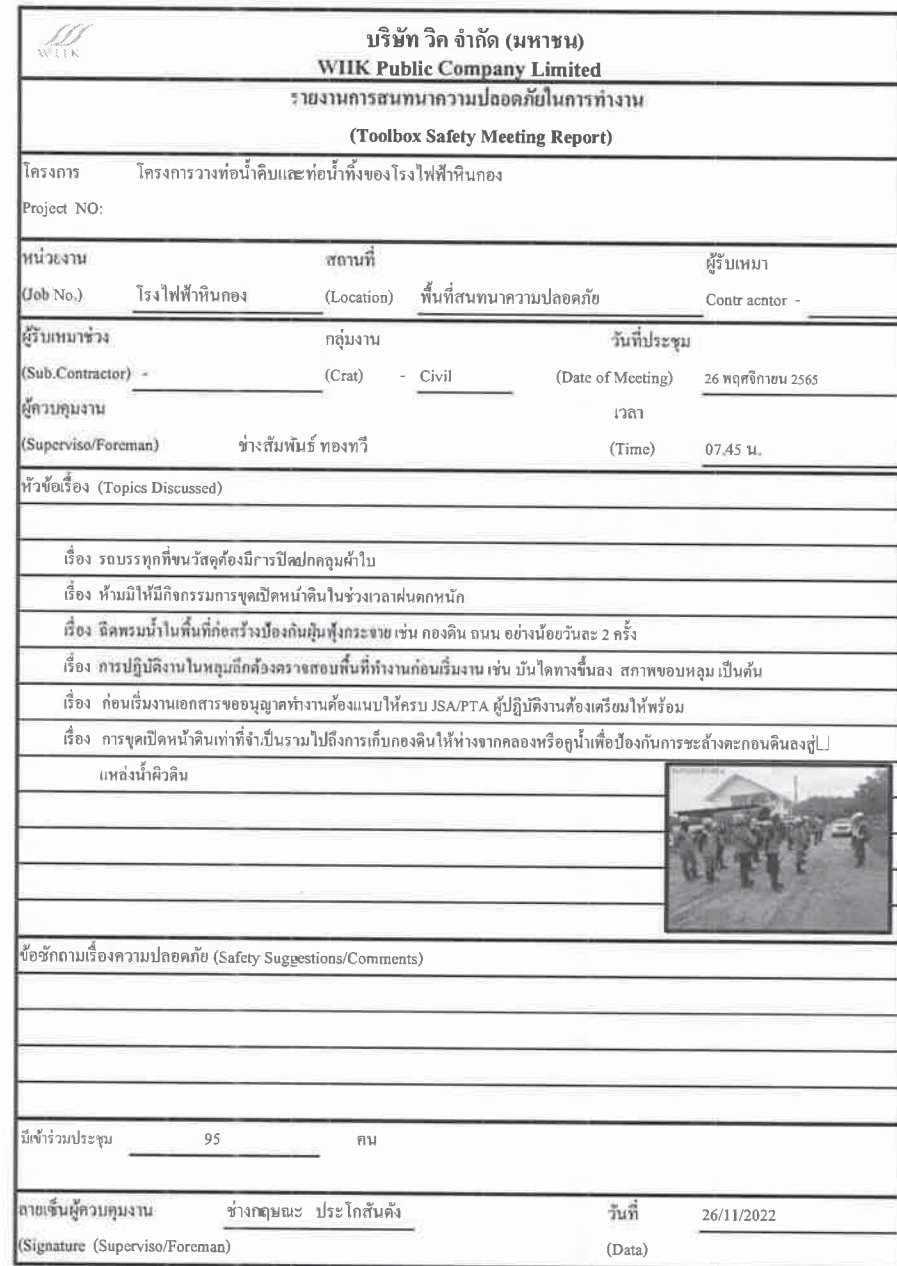 WIIK
บริษัท วิค จำกัด (มหาชน)
WIIK Public Company Limited
รายงานการสนทนาความปลอดภัยในการทำงาน
(Toolbox Safety Meeting Report)
โครงการ โครงการวางท่อน้ำดิบและท่อน้ำทิ้งของโรงไฟฟ้าหินกอง
Project NO:
หน่วยงาน สถานที่ ผู้รับเหมา
(Job No.) โรงไฟฟ้าหินกอง (Location) พื้นที่สนทนาความปลอดภัย Contr acntor -
ผู้รับเหมาช่วง กลุ่มงาน วันที่ประชุม
(Sub.Contractor) - (Crat) - Civil (Date of Meeting) 26 พฤศจิกายน 2565
ผู้ควบคุมงาน เวลา
(Superviso/Foreman) ช่างสัมพันธ์ ทองทวี (Time) 07.45 น.
หัวข้อเรื่อง (Topics Discussed)
เรื่อง รถบรรทุกที่ขนวัสดุต้องมีการปิดปกคลุมผ้าใบ
เรื่อง ห้ามมิให้มีกิจกรรมการขุดเปิดหน้าดินในช่วงเวลาฝนตกหนัก
เรื่อง ฉีดพรมน้ำในพื้นที่ก่อสร้างป้องกันฝุ่นฟุ้งกระจาย เช่น กองดิน ถนน อย่างน้อยวันละ 2 ครั้ง
เรื่อง การปฏิบัติงานในหลุมลึกต้องตรวจสอบพื้นที่ทำงานก่อนเริ่มงาน เช่น บันไดทางขึ้นลง สภาพขอบหลุม เป็นต้น
เรื่อง ก่อนเริ่มงานเอกสารขออนุญาตทำงานต้องแนบให้ครบ JSA/PTA ผู้ปฏิบัติงานต้องเตรียมให้พร้อม
เรื่อง การขุดเปิดหน้าดินเท่าที่จำเป็นรวมไปถึงการเก็บกองดินให้ห่างจากคลองหรือคูน้ำเพื่อป้องกันการชะล้างตะกอนดินลงสู่
แหล่งน้ำผิวดิน
ข้อซักถามเรื่องความปลอดภัย (Safety Suggestions/Comments)
มีเข้าร่วมประชุม 95 คน
ลายเซ็นผู้ควบคุมงาน ช่างกฤษณะ ประโกสันตัง วันที่ 26/11/2022
(Signature (Superviso/Foreman) (Data)